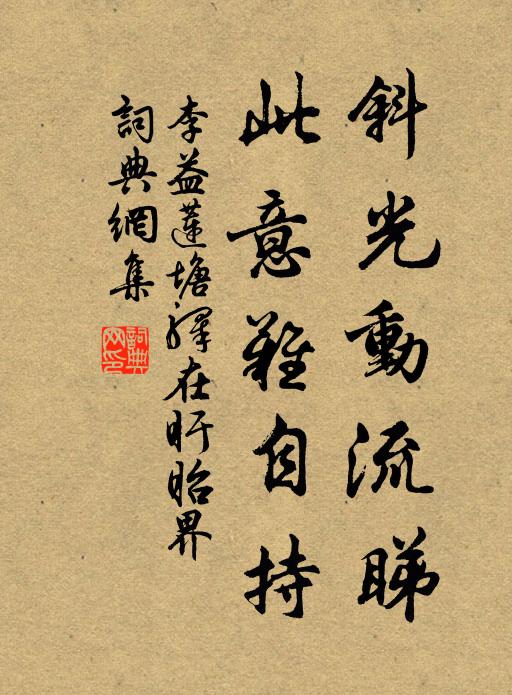 斜光動流睇
此意難自持
李益蓮塘驛在盱眙界
詞典網集
詞典
网印